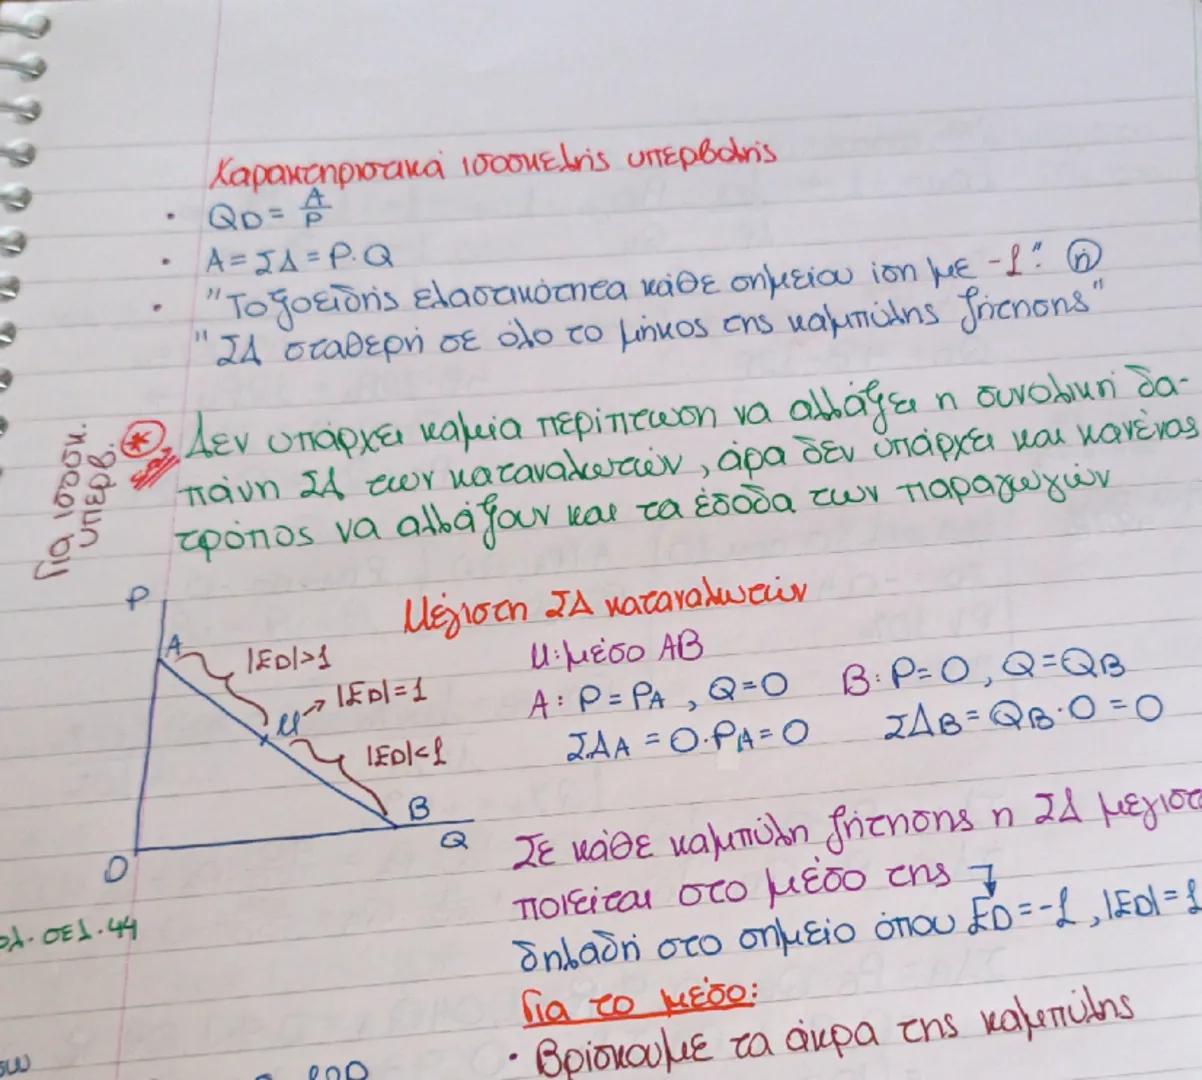 Χαρακτηριστικά ισοσκελής υπερβολής
• QD = A/P
• A = ΣΔ = P.Q
• "Τοξοειδής ελαστικότητα κάθε σημείου ίση με -1". ή
"ΣΔ σταθερή σε όλο το μήκος της καμπύλης ζήτησης"
Για ισοσκ. υπερβ.
* Δεν υπάρχει καμία περίπτωση να αλλάξει η συνολική δα-
πάνη ΣΔ των καταναλωτών, άρα δεν υπάρχει και κανένας
τρόπος να αλλάξουν και τα έσοδα των παραγωγών
Μέγιστη ΣΔ καταναλωτών
P
A
|ED|>1
M → |ED|=1
|ED|<1
B
Q
O
M: μέσο AB
A: P=PA, Q=0
ΣΔA = 0.PA=0
B: P=0, Q=QB
ΣΔB = QB.0=0
Σε κάθε καμπύλη ζήτησης η ΣΔ μεγιστο
ποιείται στο μέσο της
δηλαδή στο σημείο όπου ED=-1, |ED|=1
σελ. 44
Για το μέσο:
• Βρίσκουμε τα άκρα της καμπύλης